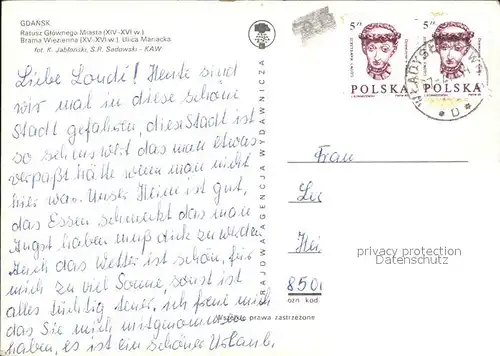 GDAŃSK
Ratusz Głównego Miasta (XIV-XVI w.)
Brama Więzienna (XV-XVI w.). Ulica Mariacka
fot. K. Jabłoński, S.R. Sadowski - KAW
Liebe Londi! Heute sind
wir mal in diese schöne
Stadt gefahren, diese Stadt ist
so sehenswert das man etwas
verpaßt hätte wenn man nicht
hier war. Unser Heim ist gut,
das Essen schmeckt das man
Angst haben muß dick zu werden
Auch das Wetter ist schön, für
mich zu viel Sonne, sonst ist
alles tüchtig teuer, ich freue mich
das Sie mich mitgenommen
haben, es ist ein schöner Urlaub.
KRAJOWA AGENCJA WYDAWNICZA
5 zł
5 zł
POLSKA
POLSKA
WŁADYSŁAWOWO
D
Frau
8501
ozn kod
Wszelkie prawa zastrzeżone
privacy protection
Datenschutz